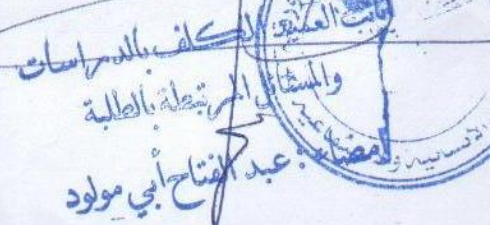 نائب العميد المكلف بالدراسات
والمسائل المرتبطة بالطلبة
امضاء: عبد الفتاح أبي مولود